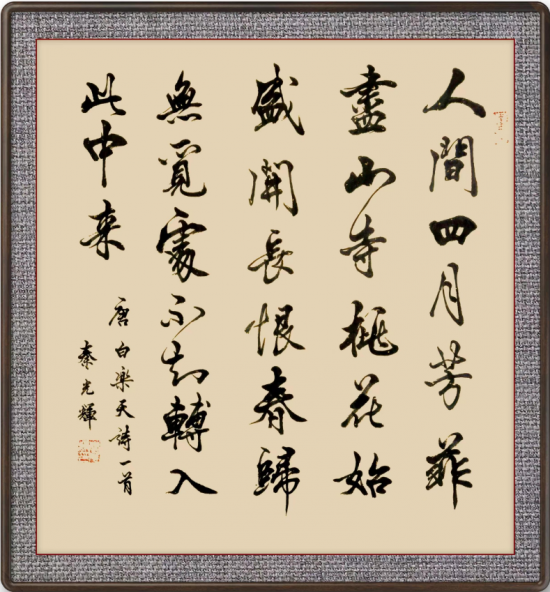 人間四月芳菲
盡山寺桃花始
盛開長恨春歸
無覓處不知轉入
此中来
唐白樂天詩一首
秦光輝